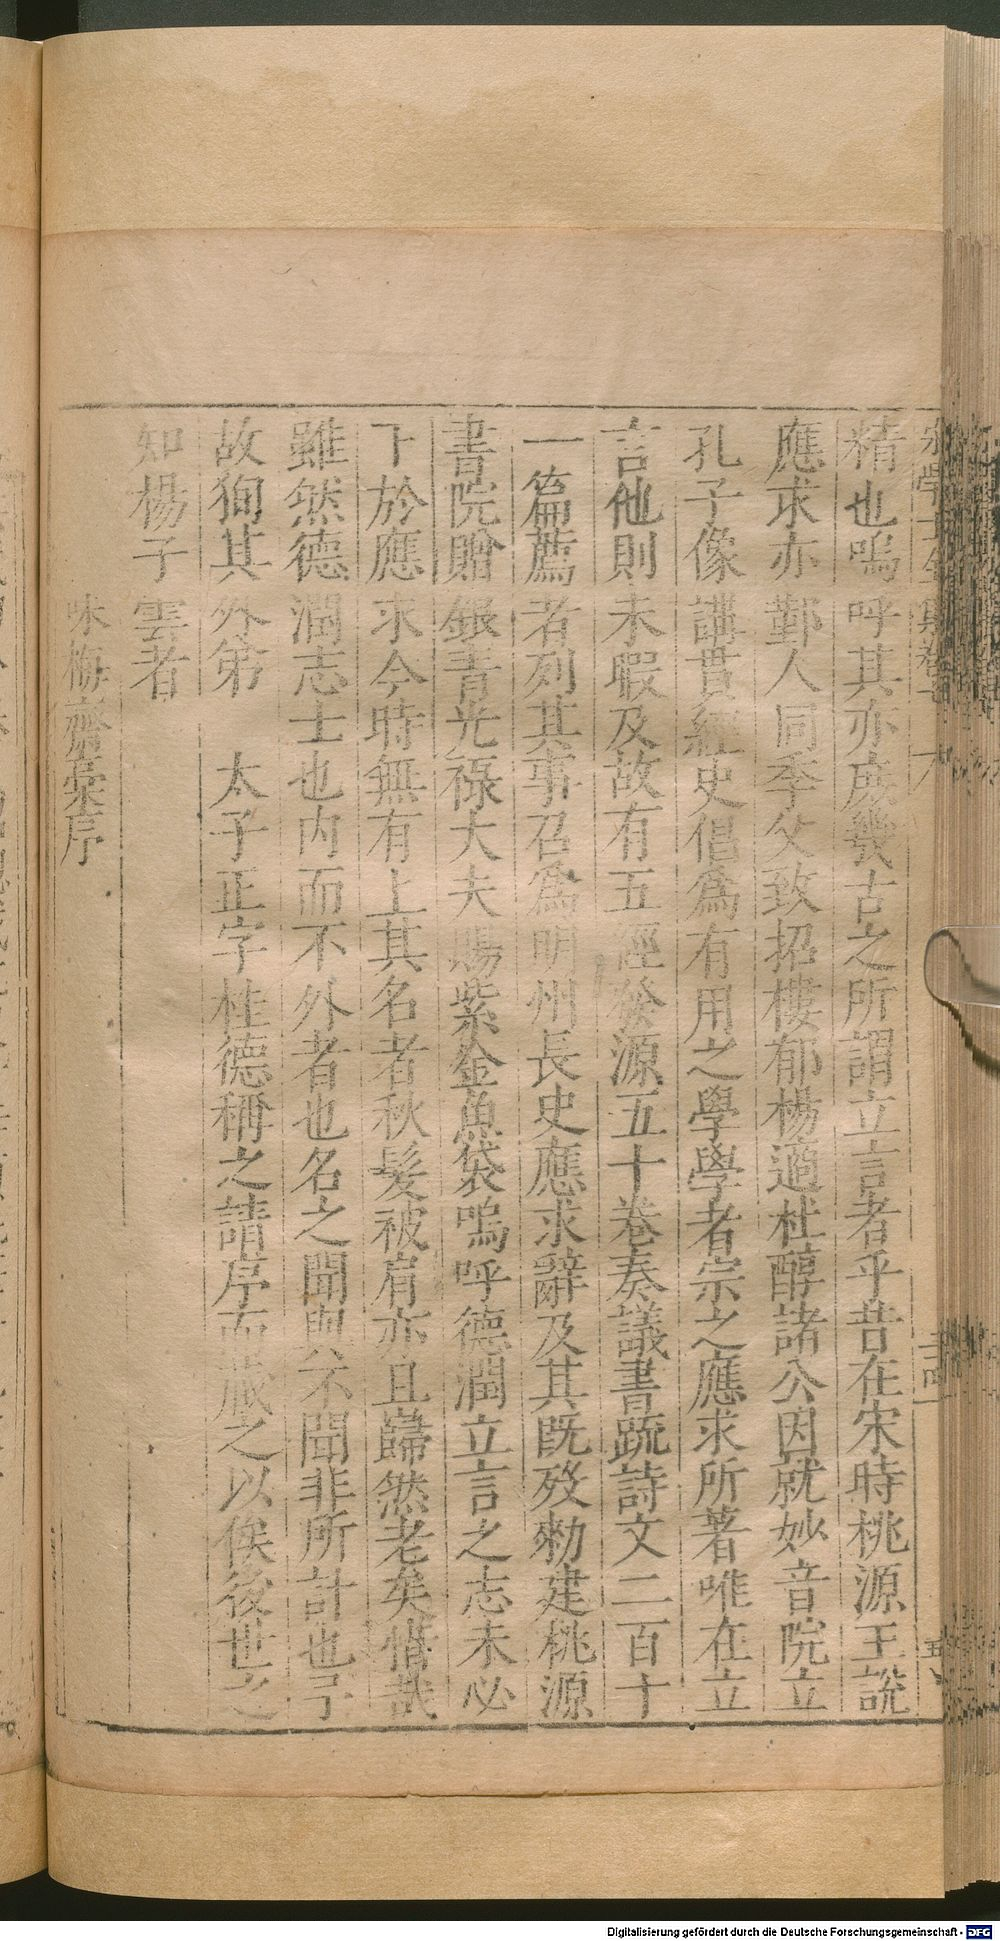 精也嗚呼其亦庶幾古之所謂立言者乎昔在宋時桃源王說
應求亦鄞人同季父致招樓郁楊適杜醇諸公因就妙音院立
孔子像講貫經史倡爲有用之學學者宗之應求所著唯在立
言他則未暇及故有五經發源五十卷奏議書䟽詩文二百十
一篇薦者列其事召爲明州長史應求辭及其旣歿勑建桃源
書院贈銀青光祿大夫賜紫金魚袋嗚呼德潤立言之志未必
下於應求今時無有上其名者秋髮被肩亦且歸然老矣惜哉
雖然德潤志士也内而不外者也名之聞與不聞非所計也予
故狥其外弟太子正字桂德稱之請序而藏之以俟後世之
知楊子雲者
味梅齋稾序
Digitalisierung gefördert durch die Deutsche Forschungsgemeinschaft - DFG